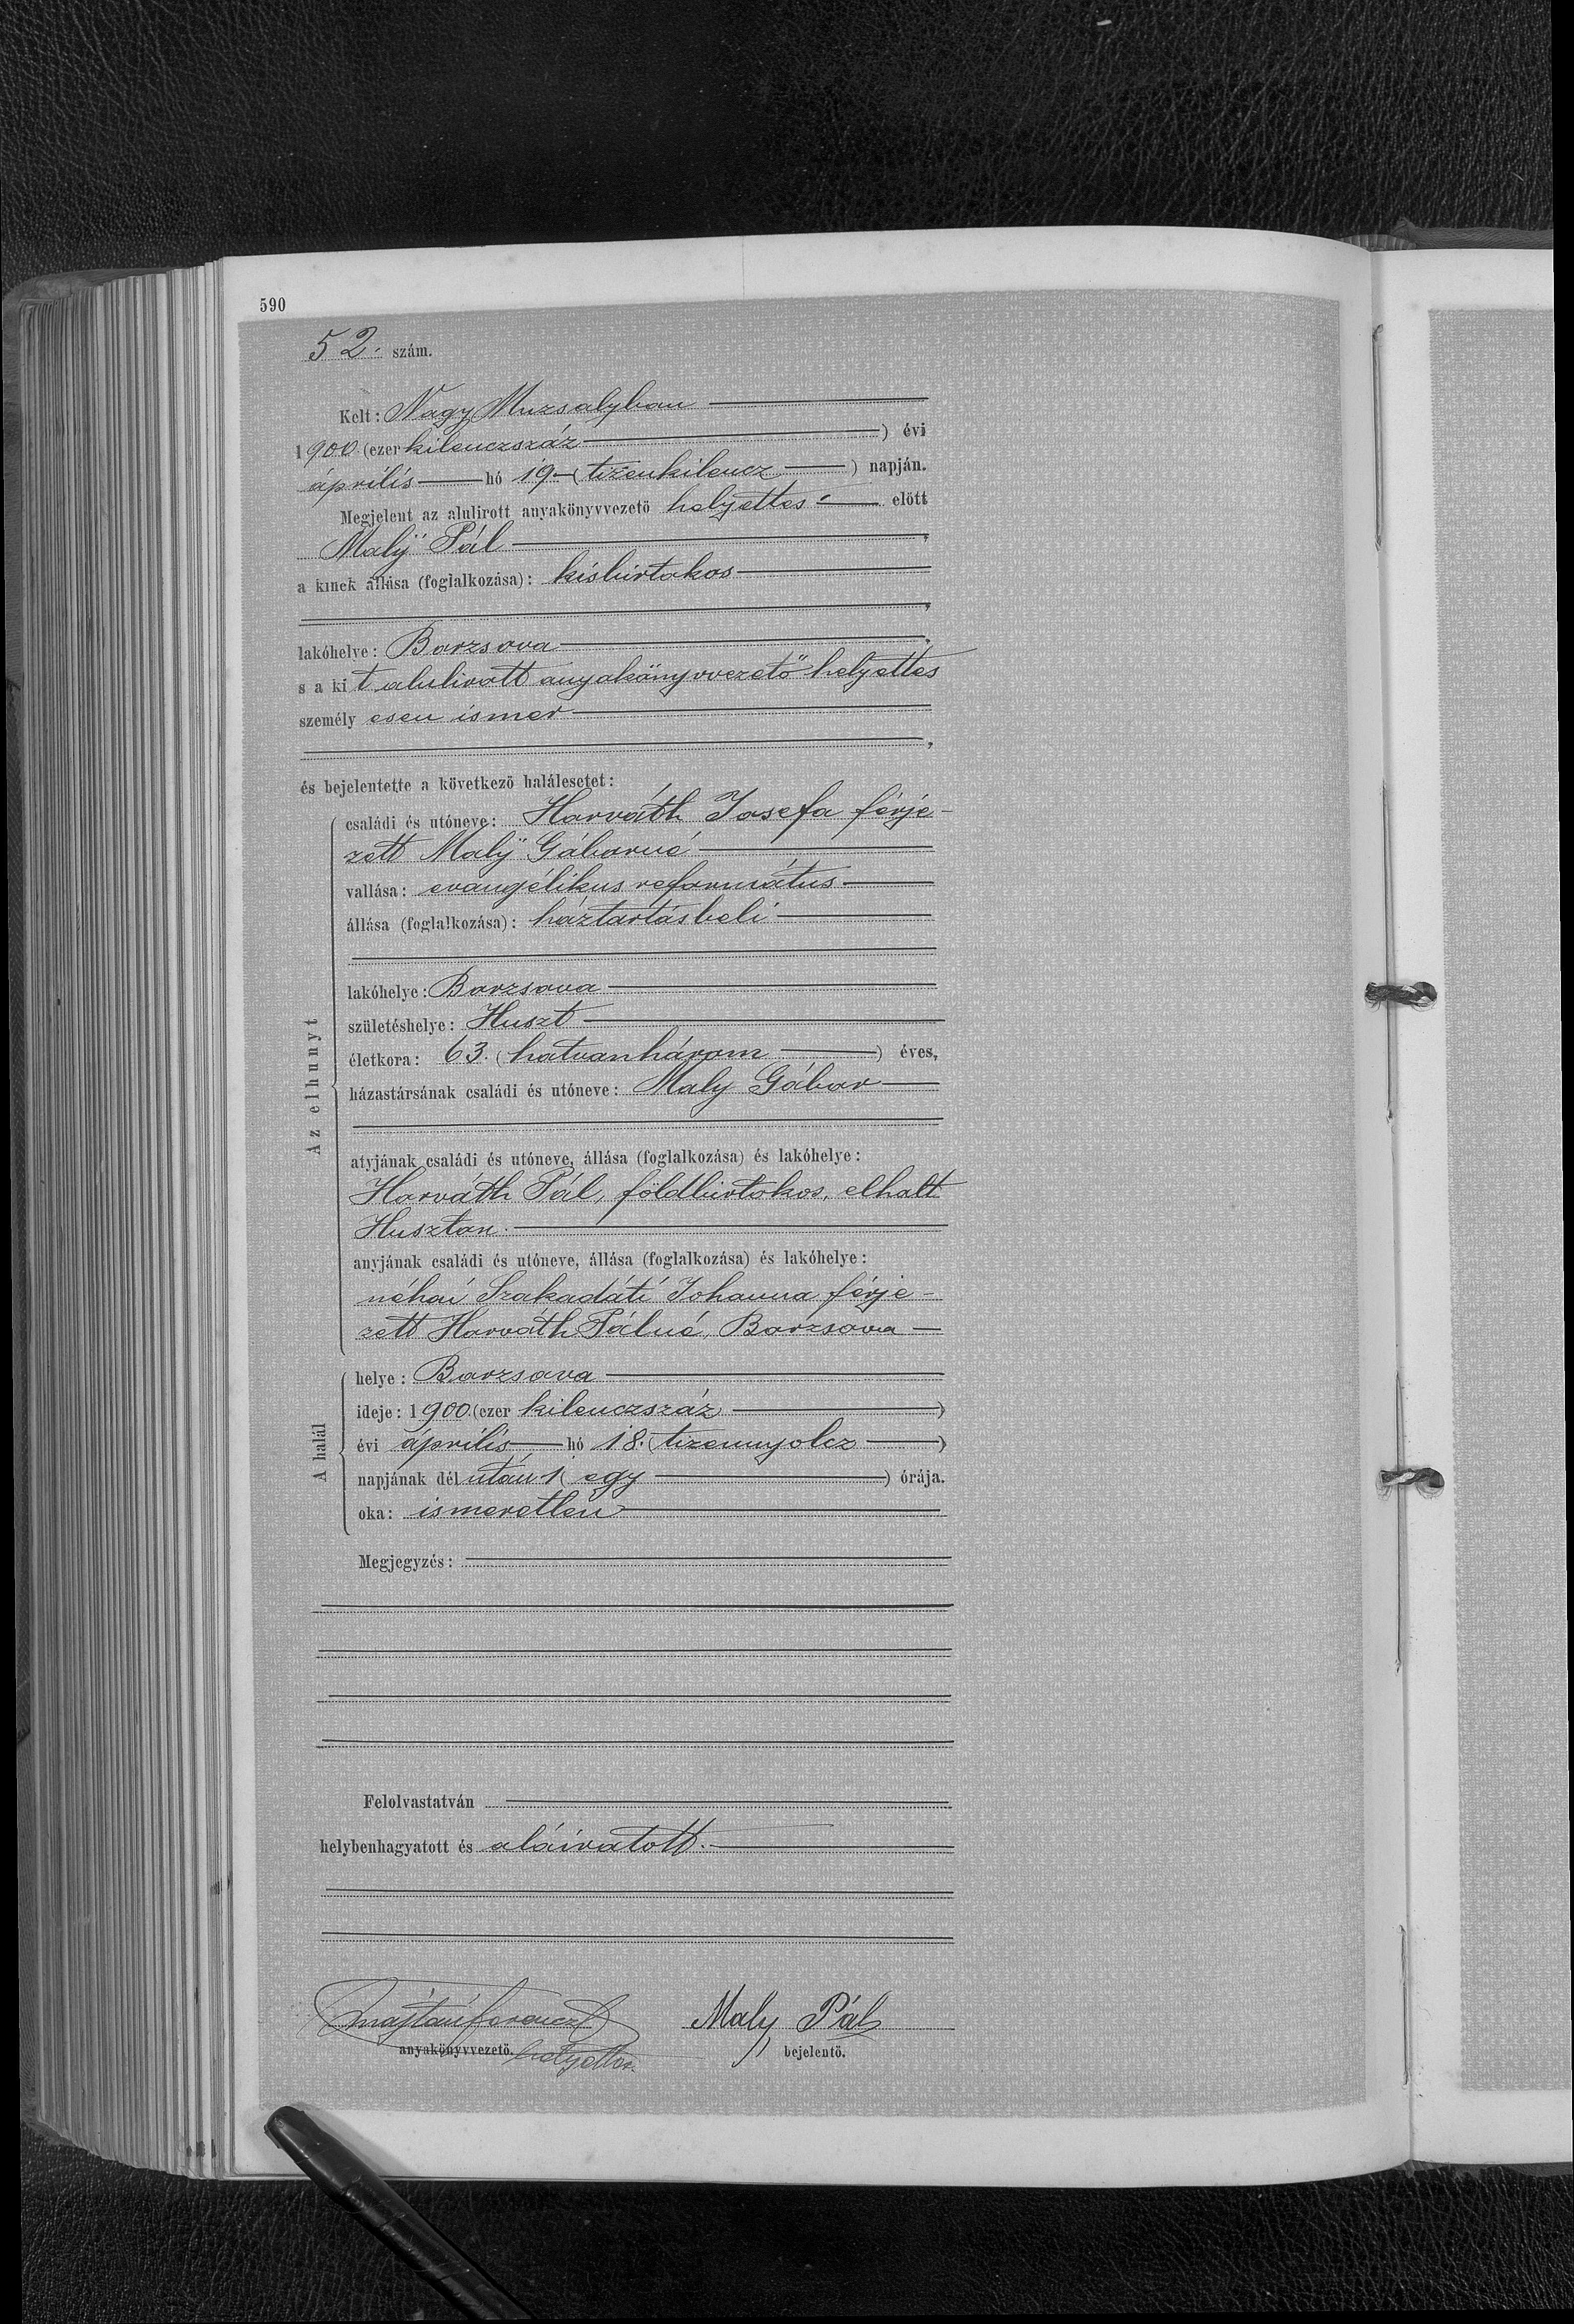 590
52. szám.
Kelt: Nagy Muzsalyban
1900 (ezer kilenczszáz) évi
április hó 19 (tizenkilencz) napján.
Megjelent az alulirott anyakönyvvezető helyettes előtt
Malÿ Pál,
a kinek állása (foglalkozása): kisbirtokos
,
lakóhelye: Borzsova,
s a kit alulirott anyakönyvvezető helyettes
személyesen ismer
,
és bejelentette a következő halálesetet:
Az elhunyt
családi és utóneve: Horváth Josefa férje-
zett Malÿ Gáborné
vallása: evangélikus református
állása (foglalkozása): háztartásbeli
lakóhelye: Borzsova
születéshelye: Huszt
életkora: 63. (hatvanhárom) éves,
házastársának családi és utóneve: Maly Gábor
atyjának családi és utóneve, állása (foglalkozása) és lakóhelye:
Horváth Pál, földbirtokos, elhalt
Huszton.
anyjának családi és utóneve, állása (foglalkozása) és lakóhelye:
néhai Szakadáti Johanna férje-
zett Horváth Pálné, Borzsova
A halál
helye: Borzsova
ideje: 1900 (ezer kilenczszáz)
évi április hó 18. (tizennyolcz)
napjának délután 1 (egy) órája.
oka: ismeretlen
Megjegyzés:
Felolvastatván
helybenhagyatott és aláiratott.
Maly Pál
anyakönyvvezető. helyettes.
bejelentő.